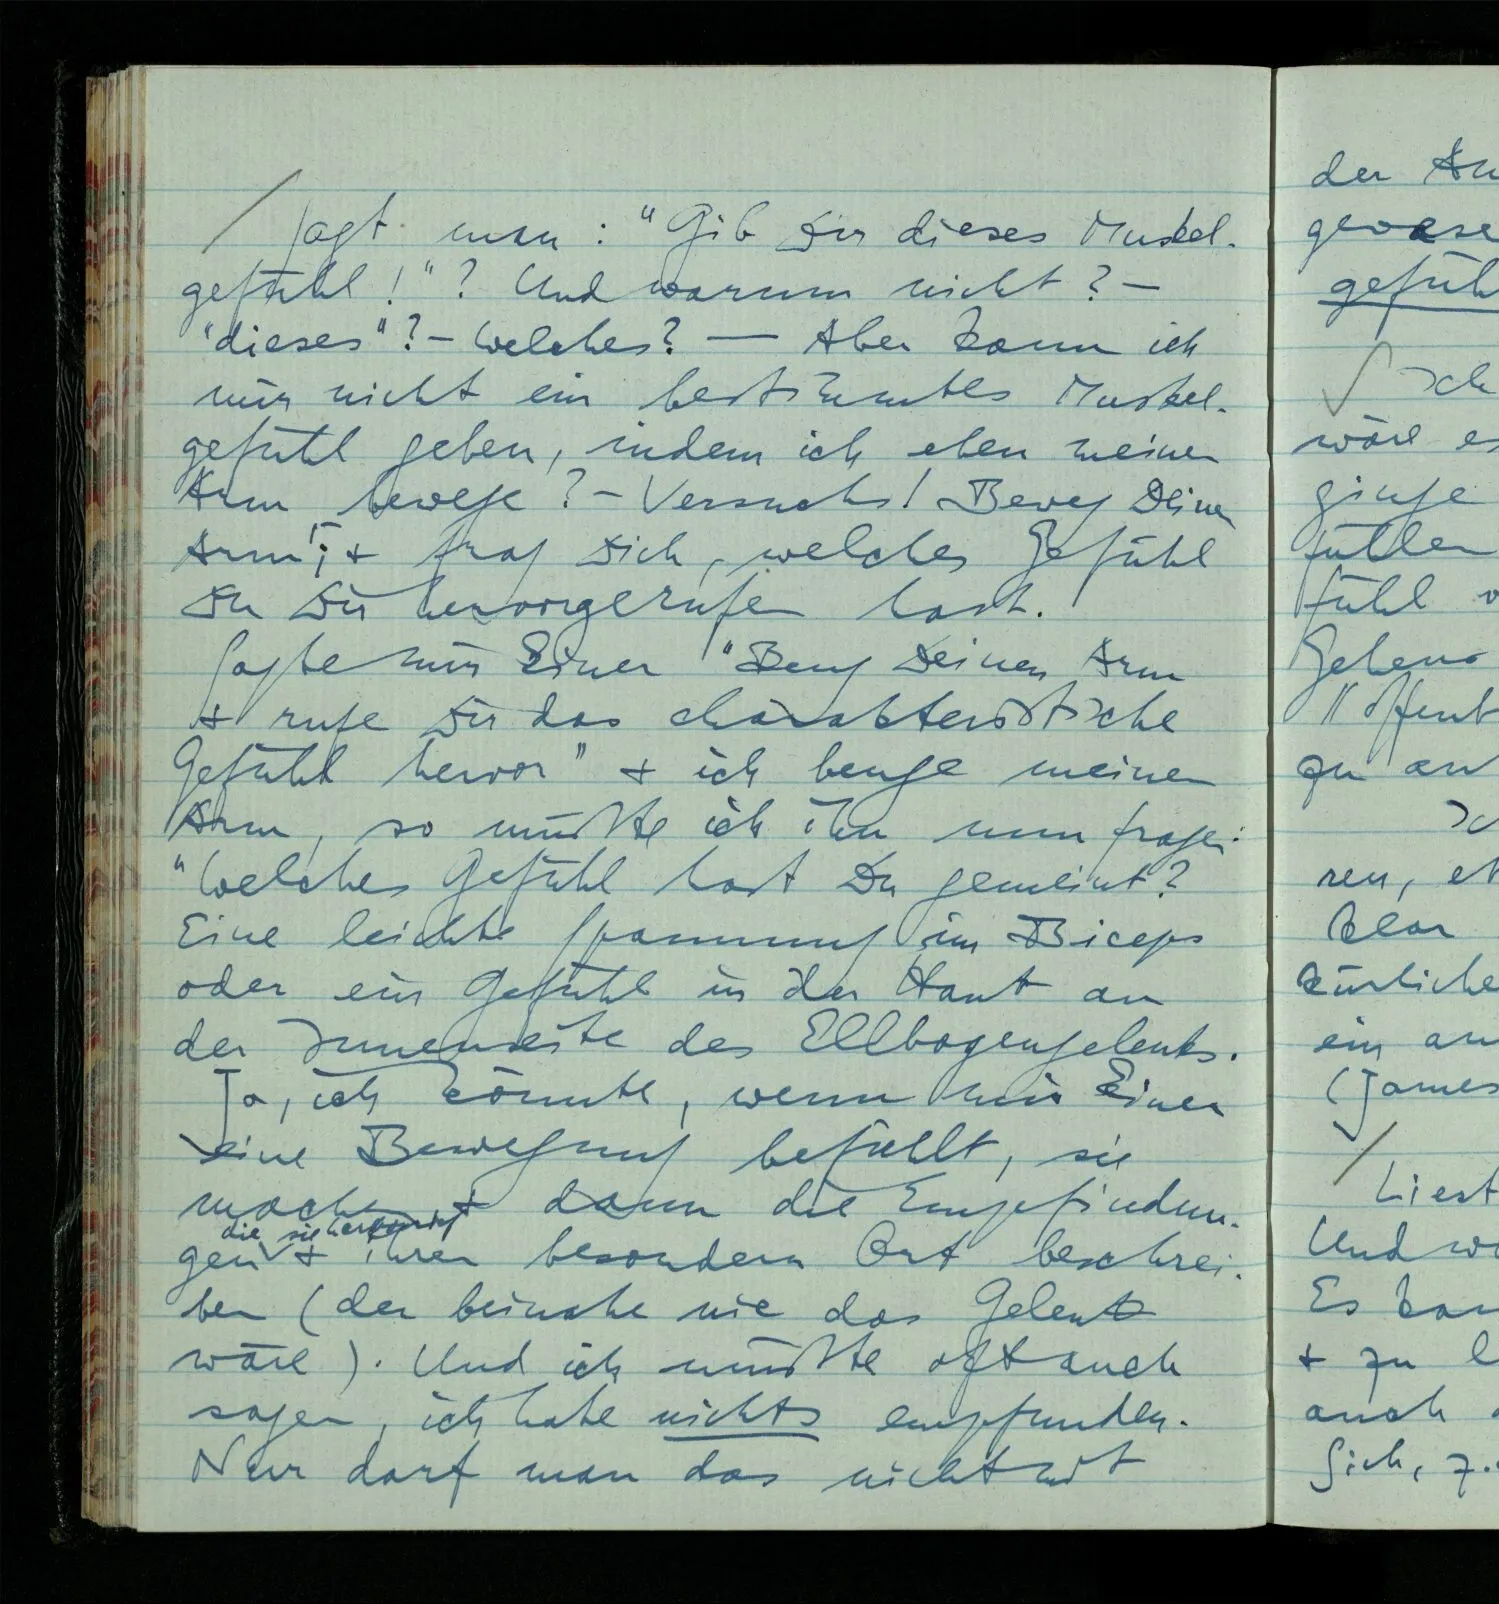 / Sagt man: "Gib Dir dieses Muskel-
gefühl!"? Und warum nicht? –
"dieses"? – Welches? — Aber kann ich
mir nicht ein bestimmtes Muskel-
gefühl geben, indem ich eben meinen
Arm bewege? – Versuchs! Beweg Deinen
Arm; + frag Dich, welches Gefühl
Du Dir hervorgerufen hast.
Sagte mir Einer "Beug Deinen Arm
+ rufe Dir das charakteristische
Gefühl hervor" + ich beuge meinen
Arm, so müßte ich ihn nun fragen:
"Welches Gefühl hast Du gemeint?
Eine leichte Spannung im Biceps
oder ein Gefühl in der Haut an
der Innenseite des Ellbogengelenks.
Ja, ich könnte, wenn mir Einer
eine Bewegung befiehlt, sie
machen + dann die Empfindun-
die sie hervorruft
gen + ihren besondern Ort beschrei-
ben (der beinahe nie das Gelenk
wäre). Und ich müßte oft auch
sagen, ich habe nichts empfunden.
Nur darf man das nicht mit
der
gefüh
Ich
wäre es
ginge
fühlen
fühl
Gehens
zu
ren, et
klar
kürliche
ein an
(James
/ Liest
Und wa
Es kan
+ zu l
auch
sich, z.